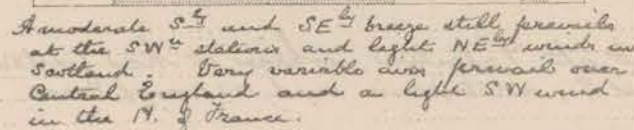 A moderate S.ly and SE.ly breeze still prevails
at the SWn stations and light NE.ly winds in
Scotland. Very variable airs prevail over
Central England and a light SW wind
in the N. of France.